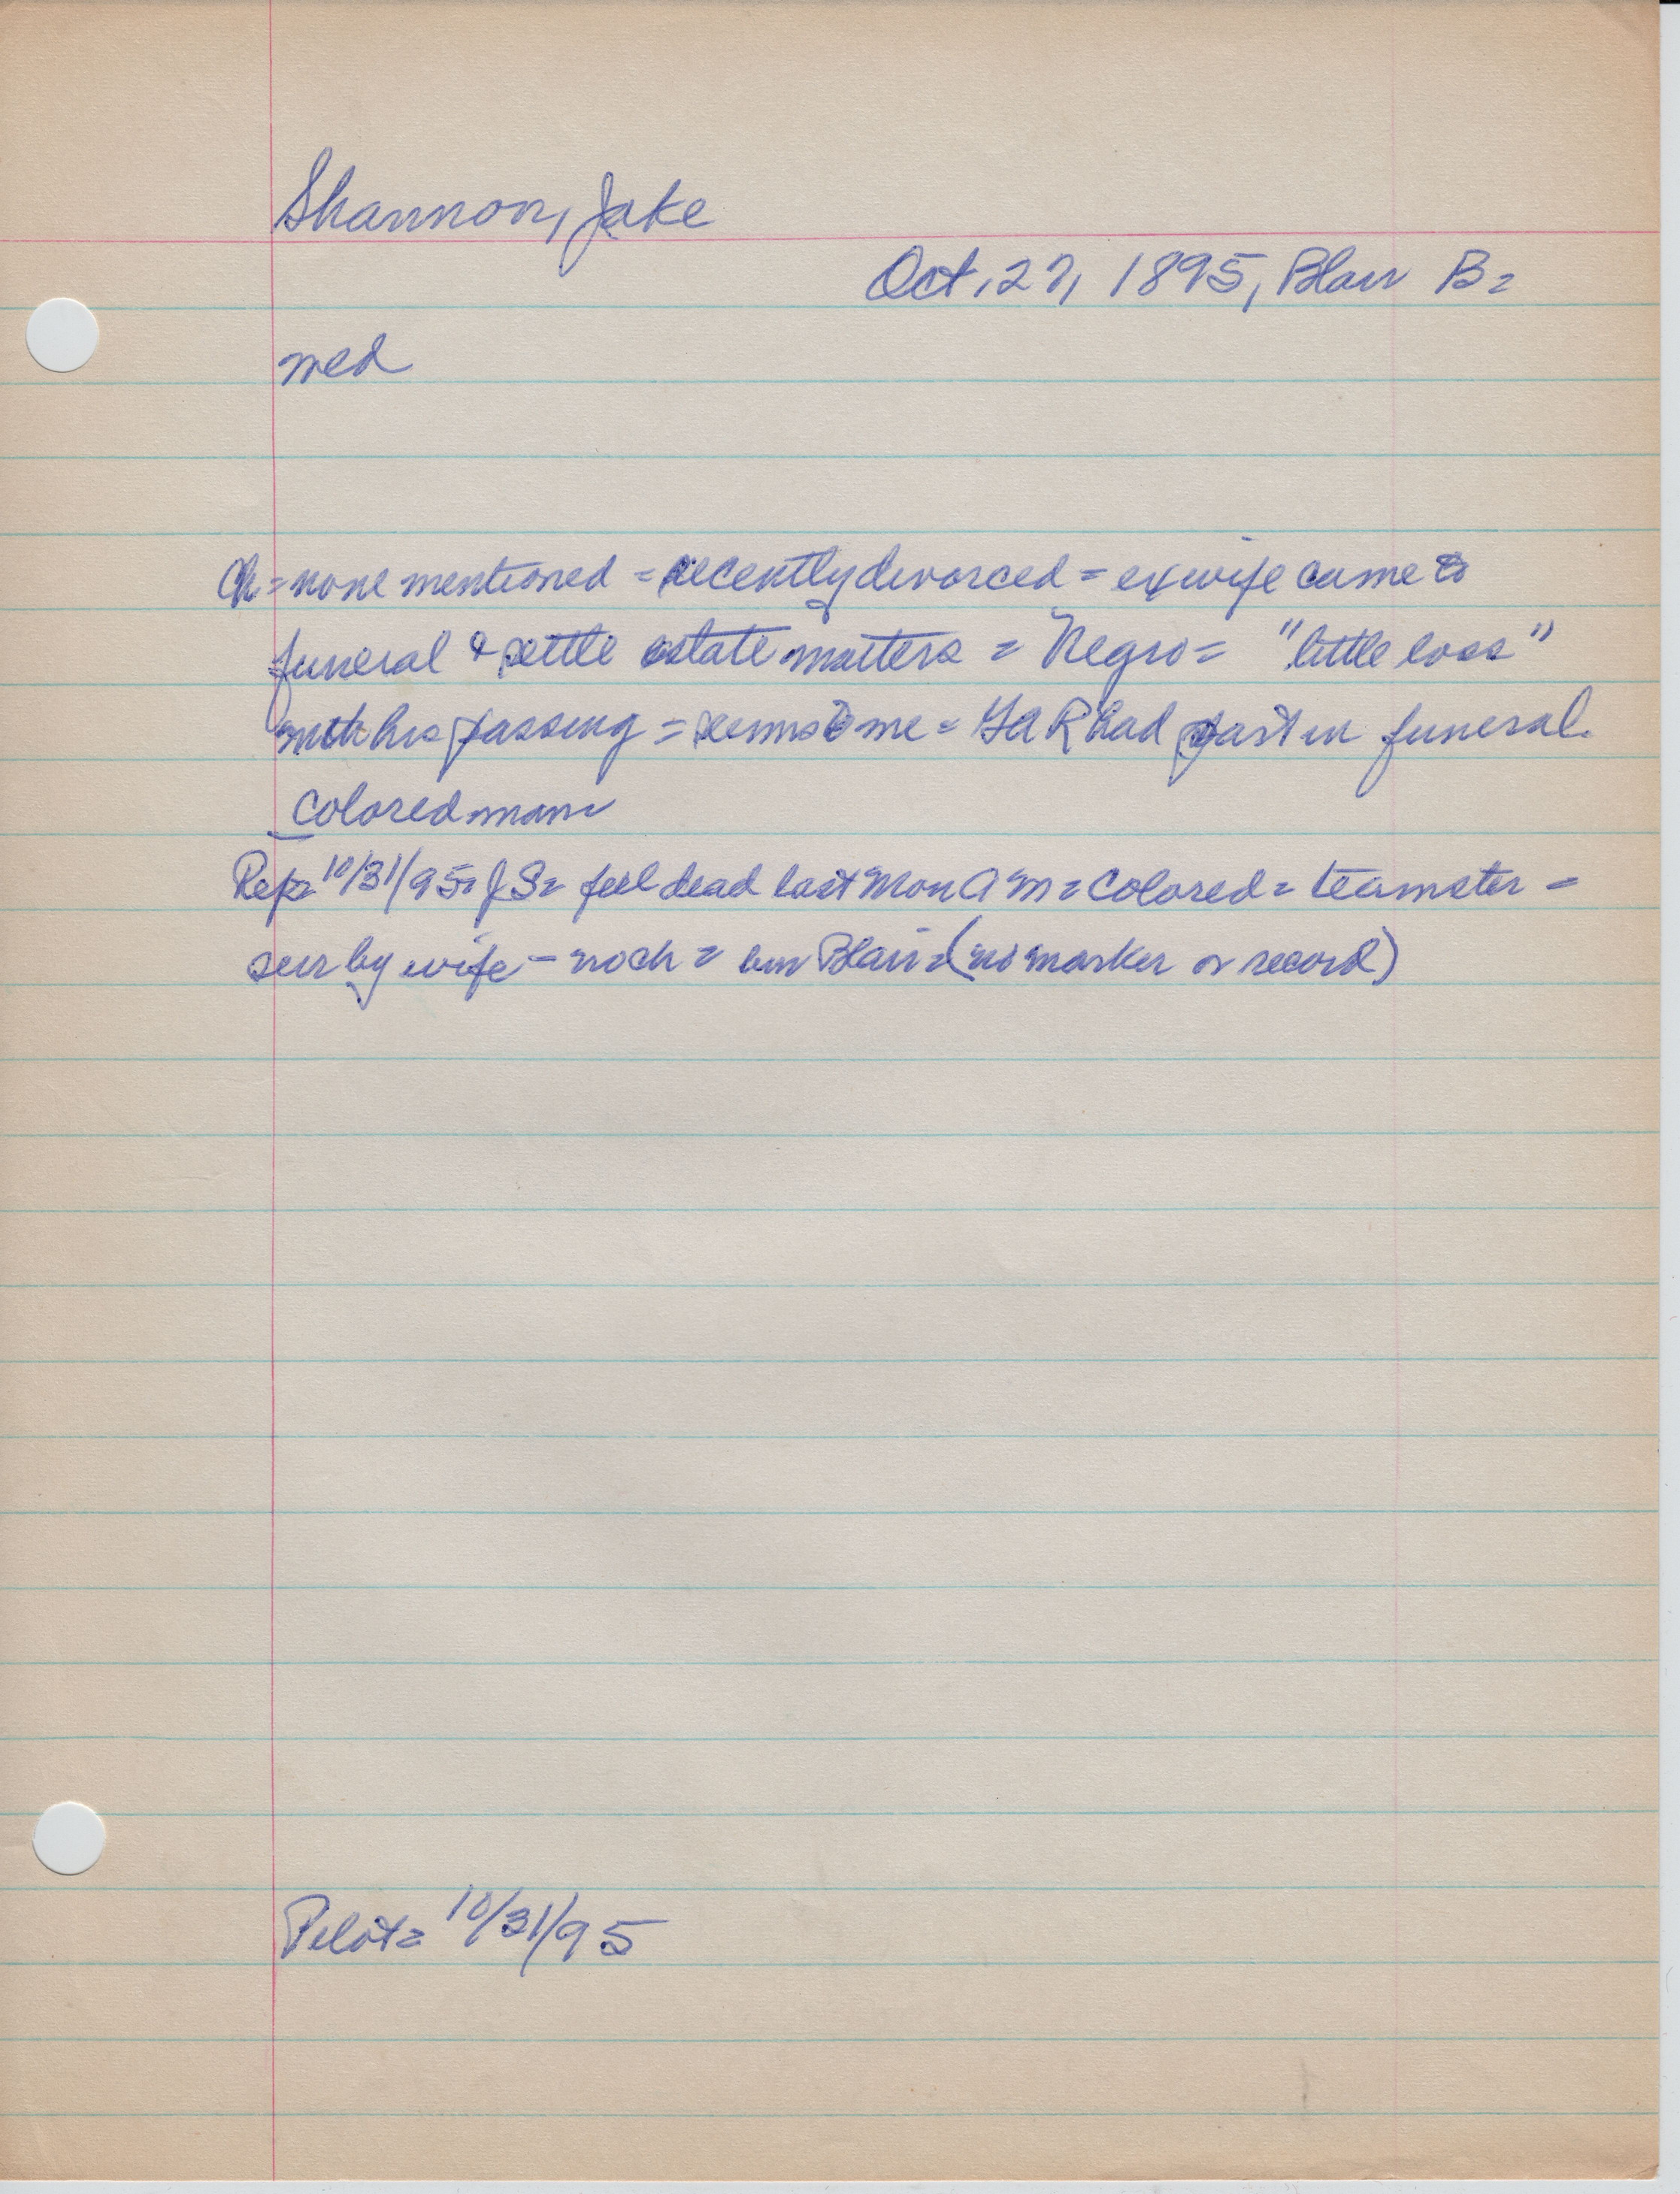 Shannon, Jake
Oct. 27, 1895, Blair B =
med
Ch = none mentioned = recently divorced = ex wife came to
funeral & settle estate matters = Negro = "little loss"
with his passing = seems to me = GAR had part in funeral.
Colored man
Rep = 10/31/95 = J S = fell dead last Mon AM = Colored = teamster =
sur by wife - no ch = bur Blair = (no marker or record)
Pilot = 10/31/95